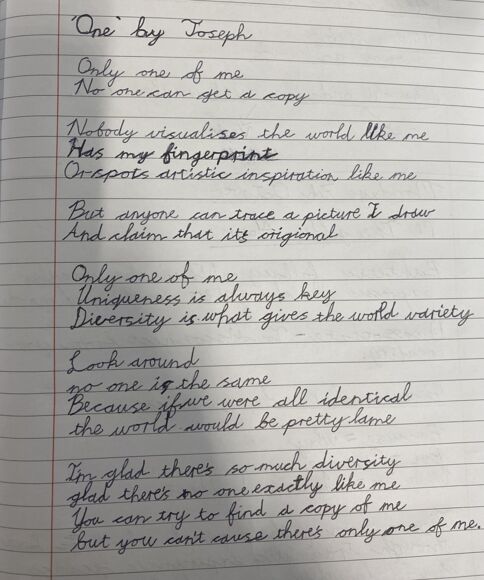 'One' by Joseph
Only one of me
No one can get a copy
Nobody visualises the world like me
Has my fingerprint
Or spots artistic inspiration like me
But anyone can trace a picture I draw
And claim that its origional
Only one of me
Uniqueness is always key
Diversity is what gives the world variety
Look around
no one is the same
Because if we were all identical
the world would be pretty lame
I'm glad there's so much diversity
glad there's no one exactly like me
You can try to find a copy of me
but you can't cause there's only one of me.